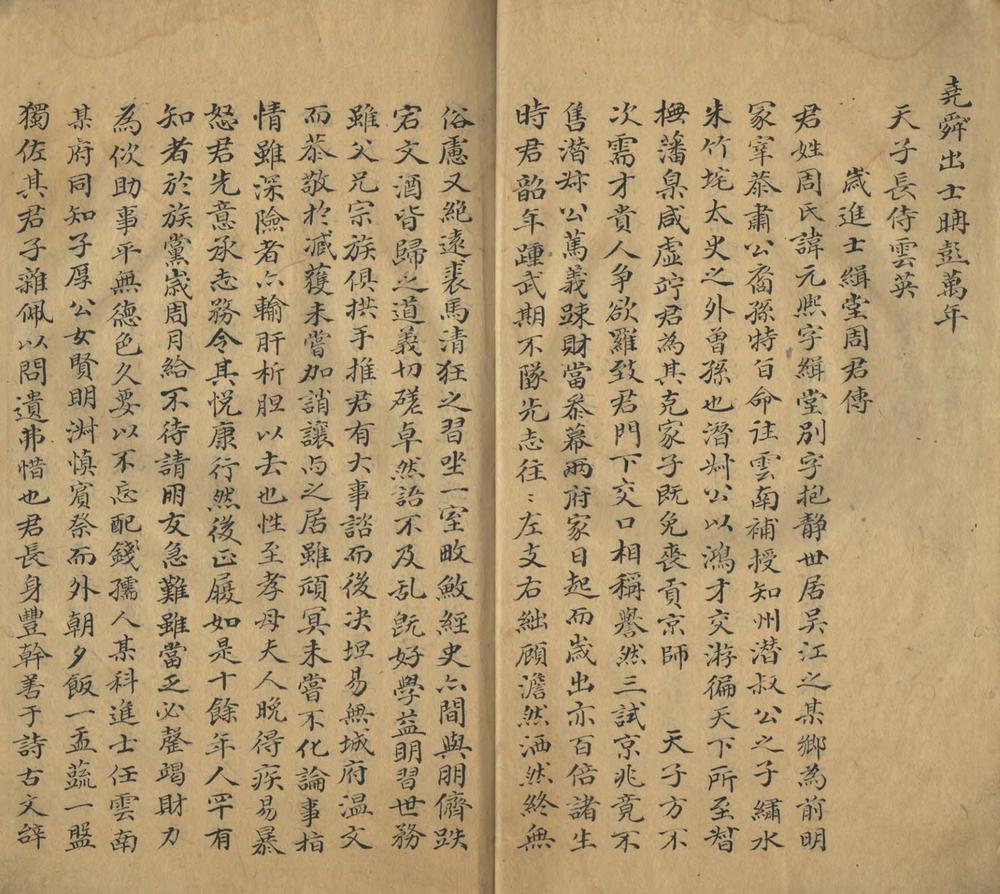 堯舜出士晭彭萬年
天子長侍雲英
歲進士緝堂周君傳
君姓周氏諱元熙字緝堂別字抱靜世居吳江之某鄉為前明
冢宰恭肅公裔孫特旨命往雲南補授知州潛叔公之子繡水
朱竹垞太史之外曾孫也潛尗公以鴻才交游徧天下所至督
撫藩臬咸虛竚君為其克家子既免喪貢京師 天子方不
次需才貴人争欲羅致君門下交口相稱譽然三試京兆竟不
售潛尗公篤義踈財當叅幕兩府家日起而歲出亦百倍諸生
時君韶年踵武期不隊先志往〻左支右絀顧澹然洒然終無
俗慮又絶遠裘馬清狂之習坐一室畋斂經史亦間與朋儕跌
宕文酒皆歸之道義切磋卓然語不及乱既好學益明習世務
雖父兄宗族俱拱手推君有大事諮而後决坦易無城府温文
而恭敬於減獲未嘗加誚讓与之居雖頑冥未嘗不化論事指
情雖深險者亦輸肝析胆以去也性至孝母夫人晚得疾易暴
怒君先意承志務令其悅康行然後正屐如是十餘年人罕有
知者於族黨歲周月給不待請朋友急難雖當乏必罄竭財力
為佽助事平無德色久要以不忘配錢孺人某科進士任雲南
某府同知子厚公女賢明淑慎賓祭而外朝夕飯一盂蔬一盤
獨佐其君子雜佩以問遺弗惜也君長身豐幹善于詩古文辞